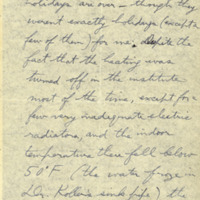 holidays are over — though they
weren't exactly holidays (except a
few of them) for me. Despite the
fact that the heating was
turned off in the institute
most of the time, except for a
few very inadequate electric
radiators, and the indoor
temperature there fell below
50°F (the water froze in
Dr. Koller's sink pipe) the